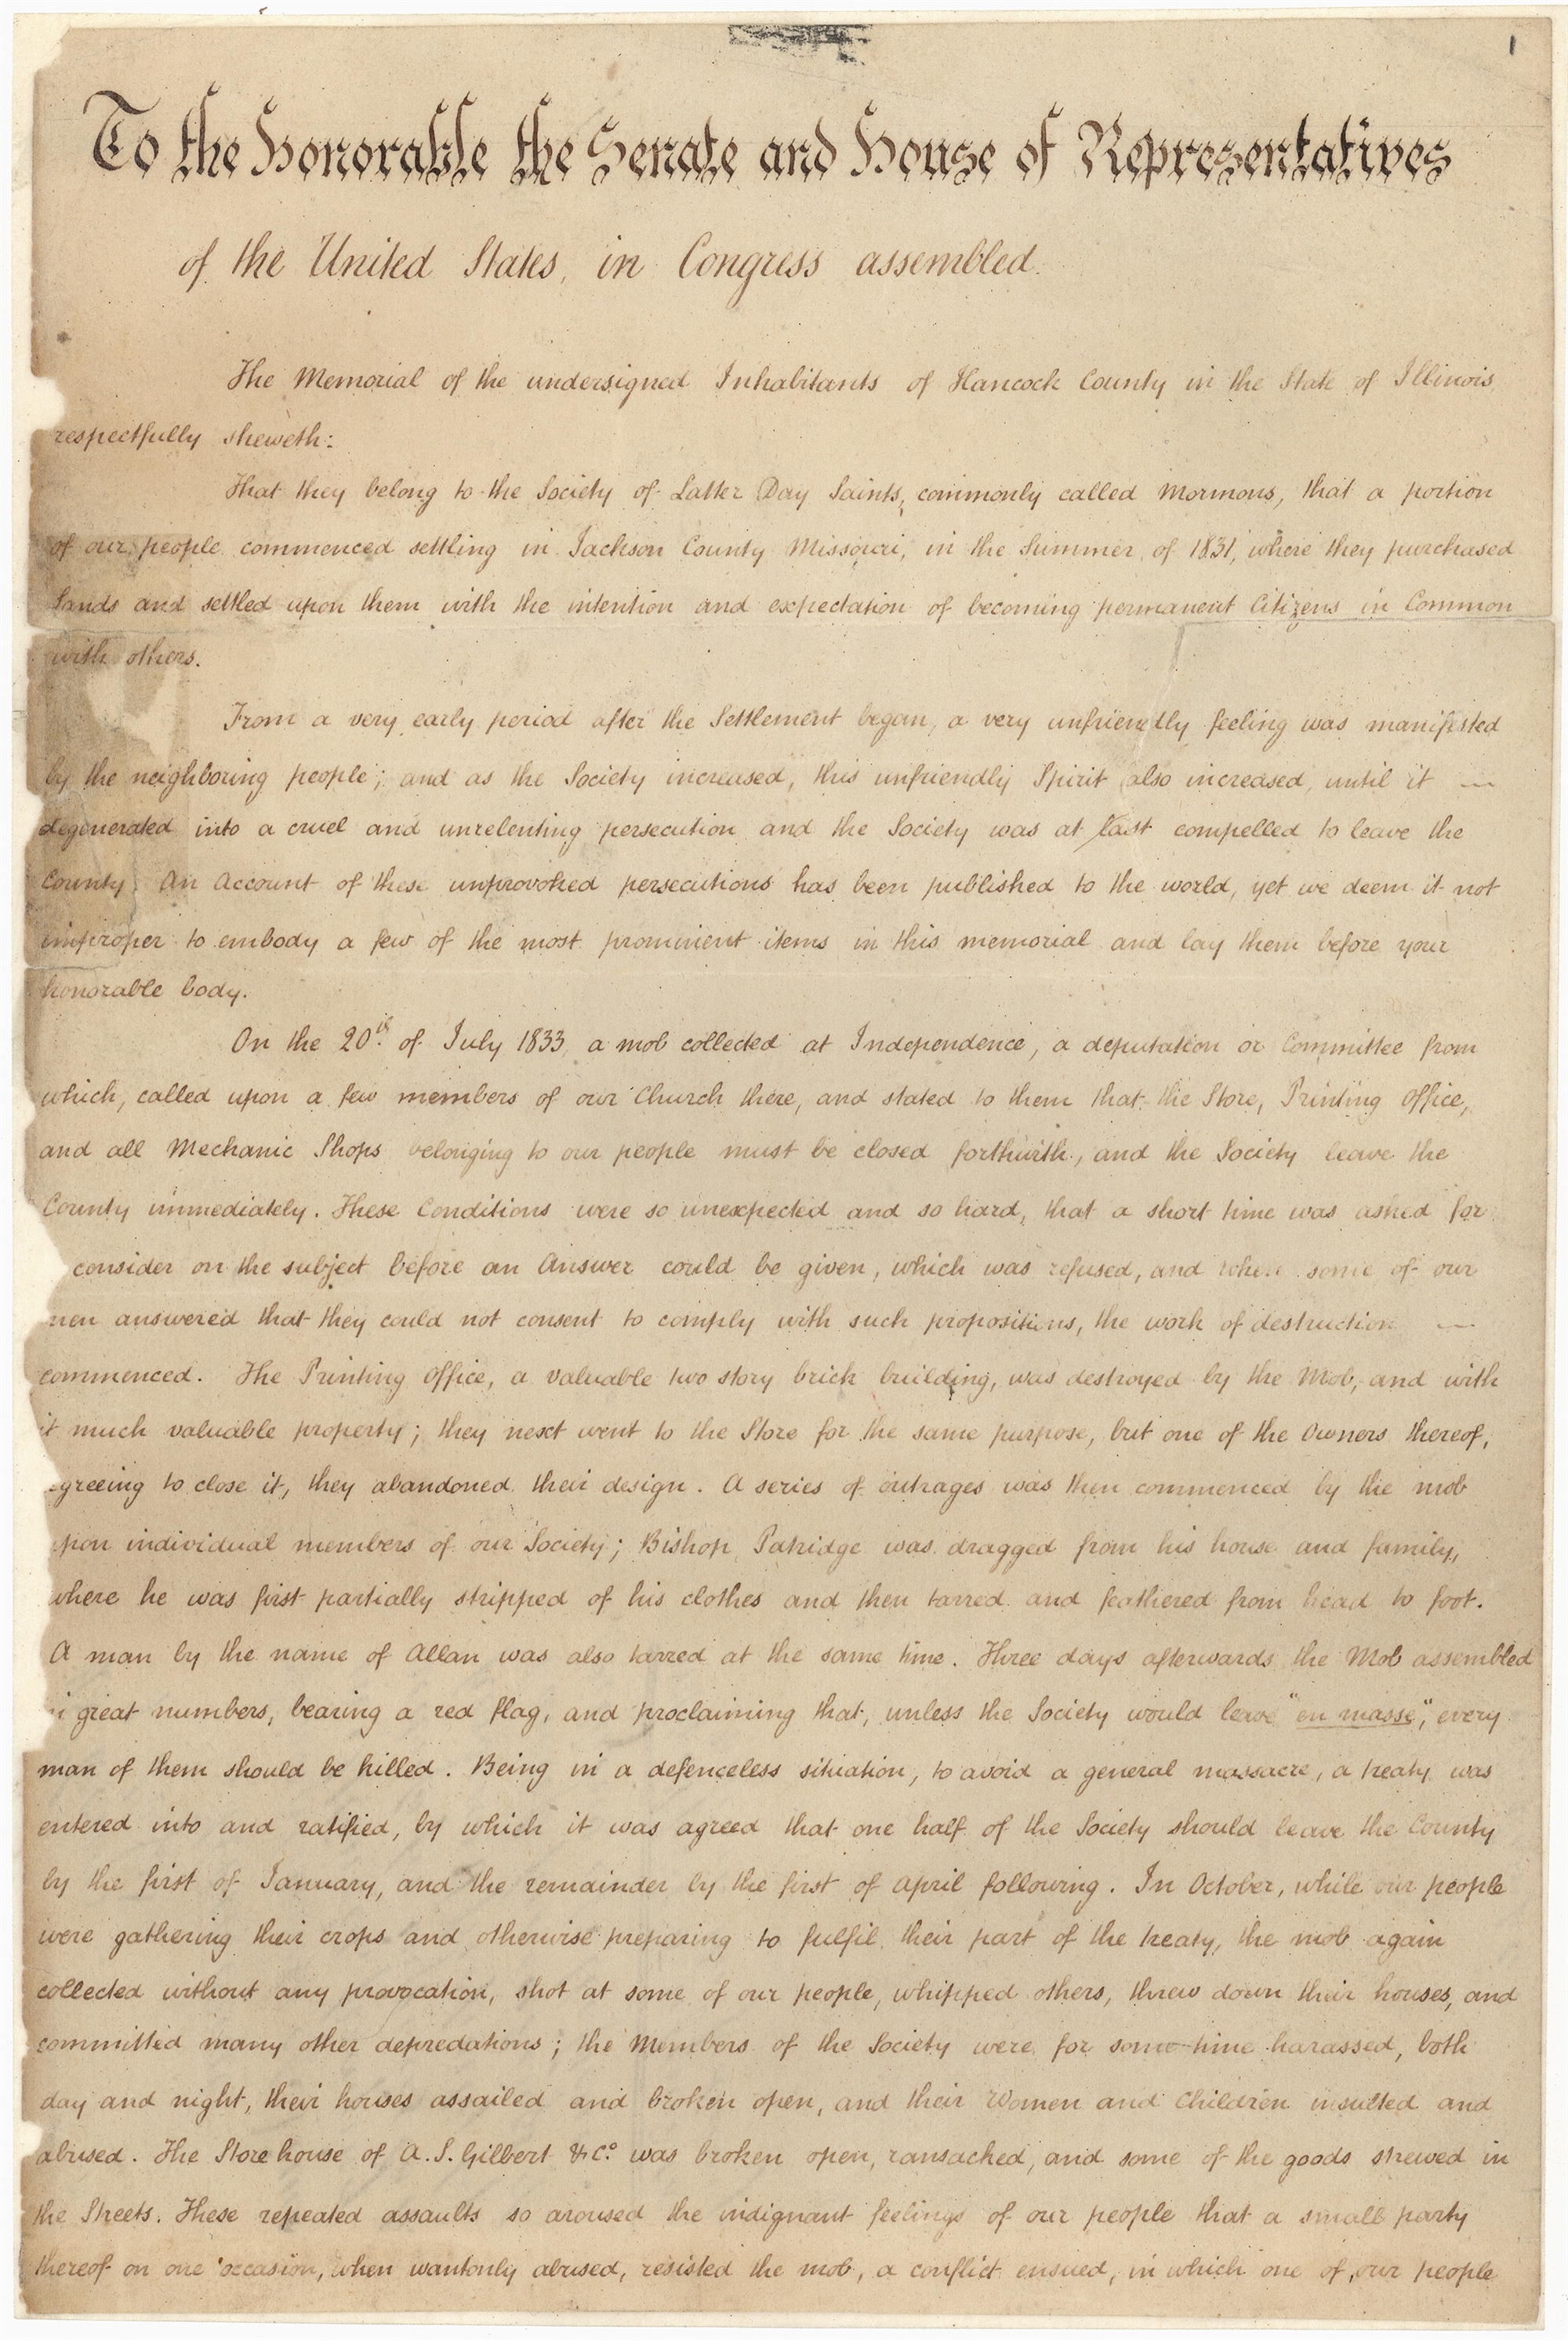 1
To the Honorable the Senate and House of Representatives
of the United States, in Congress assembled.
The Memorial of the undersigned Inhabitants of Hancock County in the State of Illinois,
respectfully sheweth:
That they belong to the Society of Latter Day Saints, commonly called Mormons, that a portion
of our people commenced settling in Jackson County Missouri, in the Summer of 1831, where they purchased
Lands and settled upon them with the intention and expectation of becoming permanent Citizens in Common
with others.
From a very early period after the Settlement began, a very unfriendly feeling was manifested
by the neighboring people; and as the Society increased, this unfriendly Spirit also increased, until it —
degenerated into a cruel and unrelenting persecution and the Society was at last compelled to leave the
County. An Account of these unprovoked persecutions has been published to the world, yet we deem it not
improper to embody a few of the most prominent items in this memorial and lay them before your
honorable body.
On the 20th. of July 1833, a mob collected at Independence, a deputation or Committee from
which, called upon a few members of our Church there, and stated to them that the Store, Printing Office,
and all Mechanic Shops belonging to our people must be closed forthwith, and the Society leave the
County immediately. These Conditions were so unexpected and so hard, that a short time was asked for
consider on the subject before an Answer could be given, which was refused, and when some of our
men answered that they could not consent to comply with such propositions, the work of destruction —
commenced. The Printing Office, a valuable two story brick building, was destroyed by the Mob, and with
it much valuable property; they next went to the Store for the same purpose, but one of the Owners thereof,
agreeing to close it, they abandoned their design. A series of outrages was then commenced by the mob
upon individual members of our Society; Bishop Patridge was dragged from his house and family,
where he was first partially stripped of his clothes and then tarred and feathered from head to foot.
A man by the name of Allan was also tarred at the same time. Three days afterwards the Mob assembled
in great numbers, bearing a red flag, and proclaiming that, unless the Society would leave "en masse", every
man of them should be killed. Being in a defenceless situation, to avoid a general massacre, a treaty was
entered into and ratified, by which it was agreed that one half of the Society should leave the County
by the first of January, and the remainder by the first of April following. In October, while our people
were gathering their crops and otherwise preparing to fulfil their part of the treaty, the mob again
collected without any provocation, shot at some of our people, whipped others, threw down their houses, and
committed many other depredations; the Members of the Society were for some time harassed, both
day and night, their houses assailed and broken open, and their Women and Children insulted and
abused. The Store house of A. S. Gilbert & Co. was broken open, ransacked, and some of the goods strewed in
the Streets. These repeated assaults so aroused the indignant feelings of our people that a small party
thereof on one occasion, when wantonly abused, resisted the mob, a conflict ensued, in which one of our people